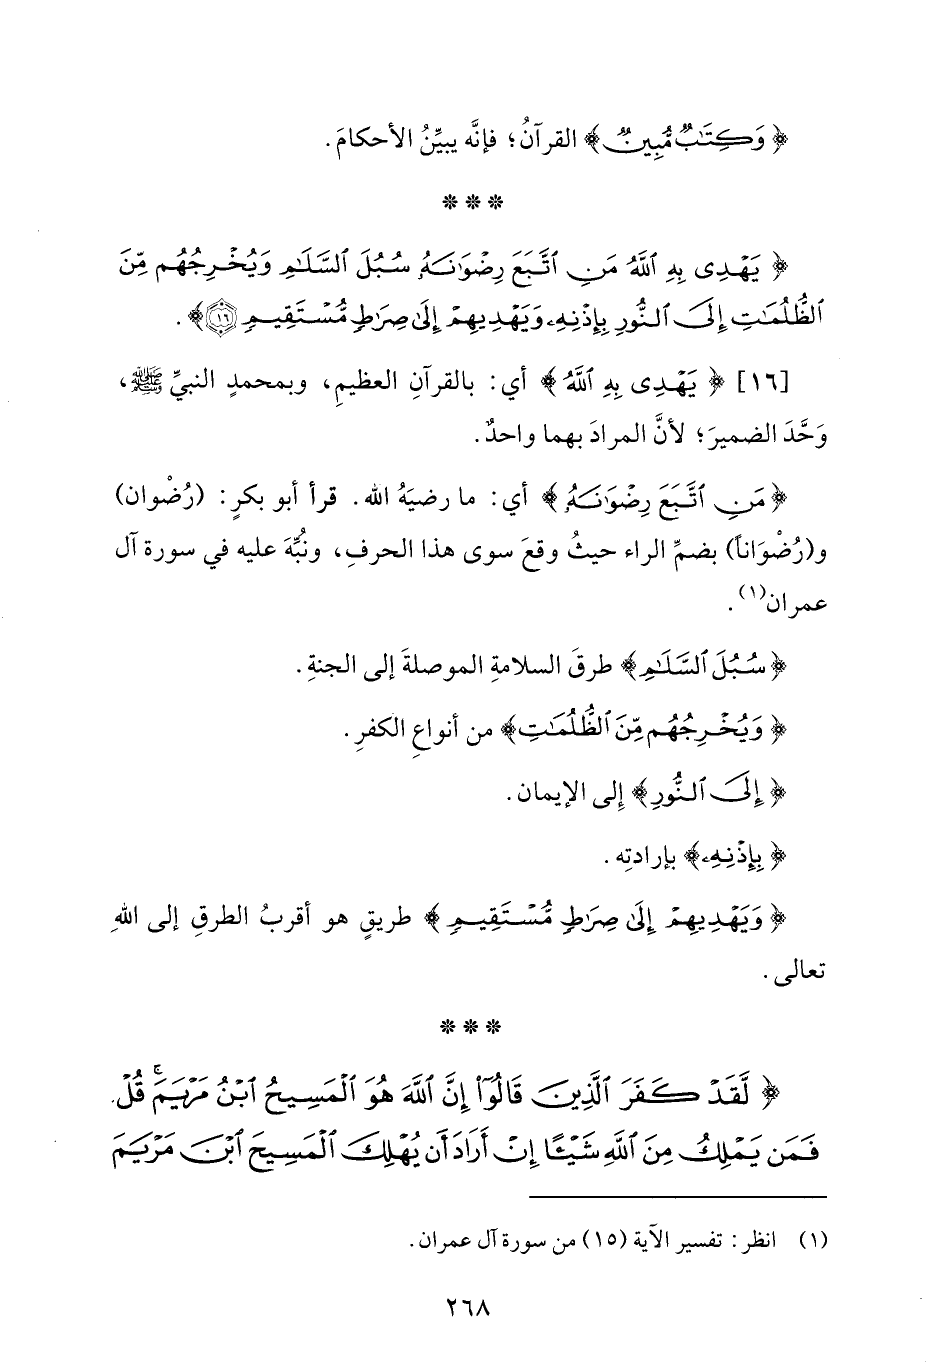 ﴿ وَكِتَٰبٌ مُّبِينٌ ﴾ القرآنُ؛ فإنَّه يبيِّنُ الأحكامَ.
* * *
﴿ يَهْدِى بِهِ ٱللَّهُ مَنِ ٱتَّبَعَ رِضْوَٰنَهُۥ سُبُلَ ٱلسَّلَٰمِ وَيُخْرِجُهُم مِّنَ
ٱلظُّلُمَٰتِ إِلَى ٱلنُّورِ بِإِذْنِهِۦ وَيَهْدِيهِمْ إِلَىٰ صِرَٰطٍ مُّسْتَقِيمٍ ١٦ ﴾.
[١٦] ﴿ يَهْدِى بِهِ ٱللَّهُ ﴾ أي: بالقرآنِ العظيمِ، وبمحمدٍ النبيِّ ﷺ،
وَحَّدَ الضميرَ؛ لأنَّ المرادَ بهما واحدٌ.
﴿ مَنِ ٱتَّبَعَ رِضْوَٰنَهُۥ ﴾ أي: ما رضيَهُ الله. قرأ أبو بكرٍ: (رُضْوان)
و(رُضْوَاناً) بضمِّ الراء حيثُ وقعَ سوى هذا الحرفِ، ونُبِّهَ عليه في سورة آل
عمران(١).
﴿ سُبُلَ ٱلسَّلَٰمِ ﴾ طرقَ السلامةِ الموصلةَ إلى الجنةِ.
﴿ وَيُخْرِجُهُم مِّنَ ٱلظُّلُمَٰتِ ﴾ من أنواعِ الكفرِ.
﴿ إِلَى ٱلنُّورِ ﴾ إلى الإيمان.
﴿ بِإِذْنِهِۦ ﴾ بإرادتِه.
﴿ وَيَهْدِيهِمْ إِلَىٰ صِرَٰطٍ مُّسْتَقِيمٍ ﴾ طريقٍ هو أقربُ الطرقِ إلى اللهِ
تعالى.
* * *
﴿ لَّقَدْ كَفَرَ ٱلَّذِينَ قَالُوٓا۟ إِنَّ ٱللَّهَ هُوَ ٱلْمَسِيحُ ٱبْنُ مَرْيَمَ ۚ قُلْ
فَمَن يَمْلِكُ مِنَ ٱللَّهِ شَيْـًٔا إِنْ أَرَادَ أَن يُهْلِكَ ٱلْمَسِيحَ ٱبْنَ مَرْيَمَ
(١) انظر: تفسير الآية (١٥) من سورة آل عمران.
٢٦٨